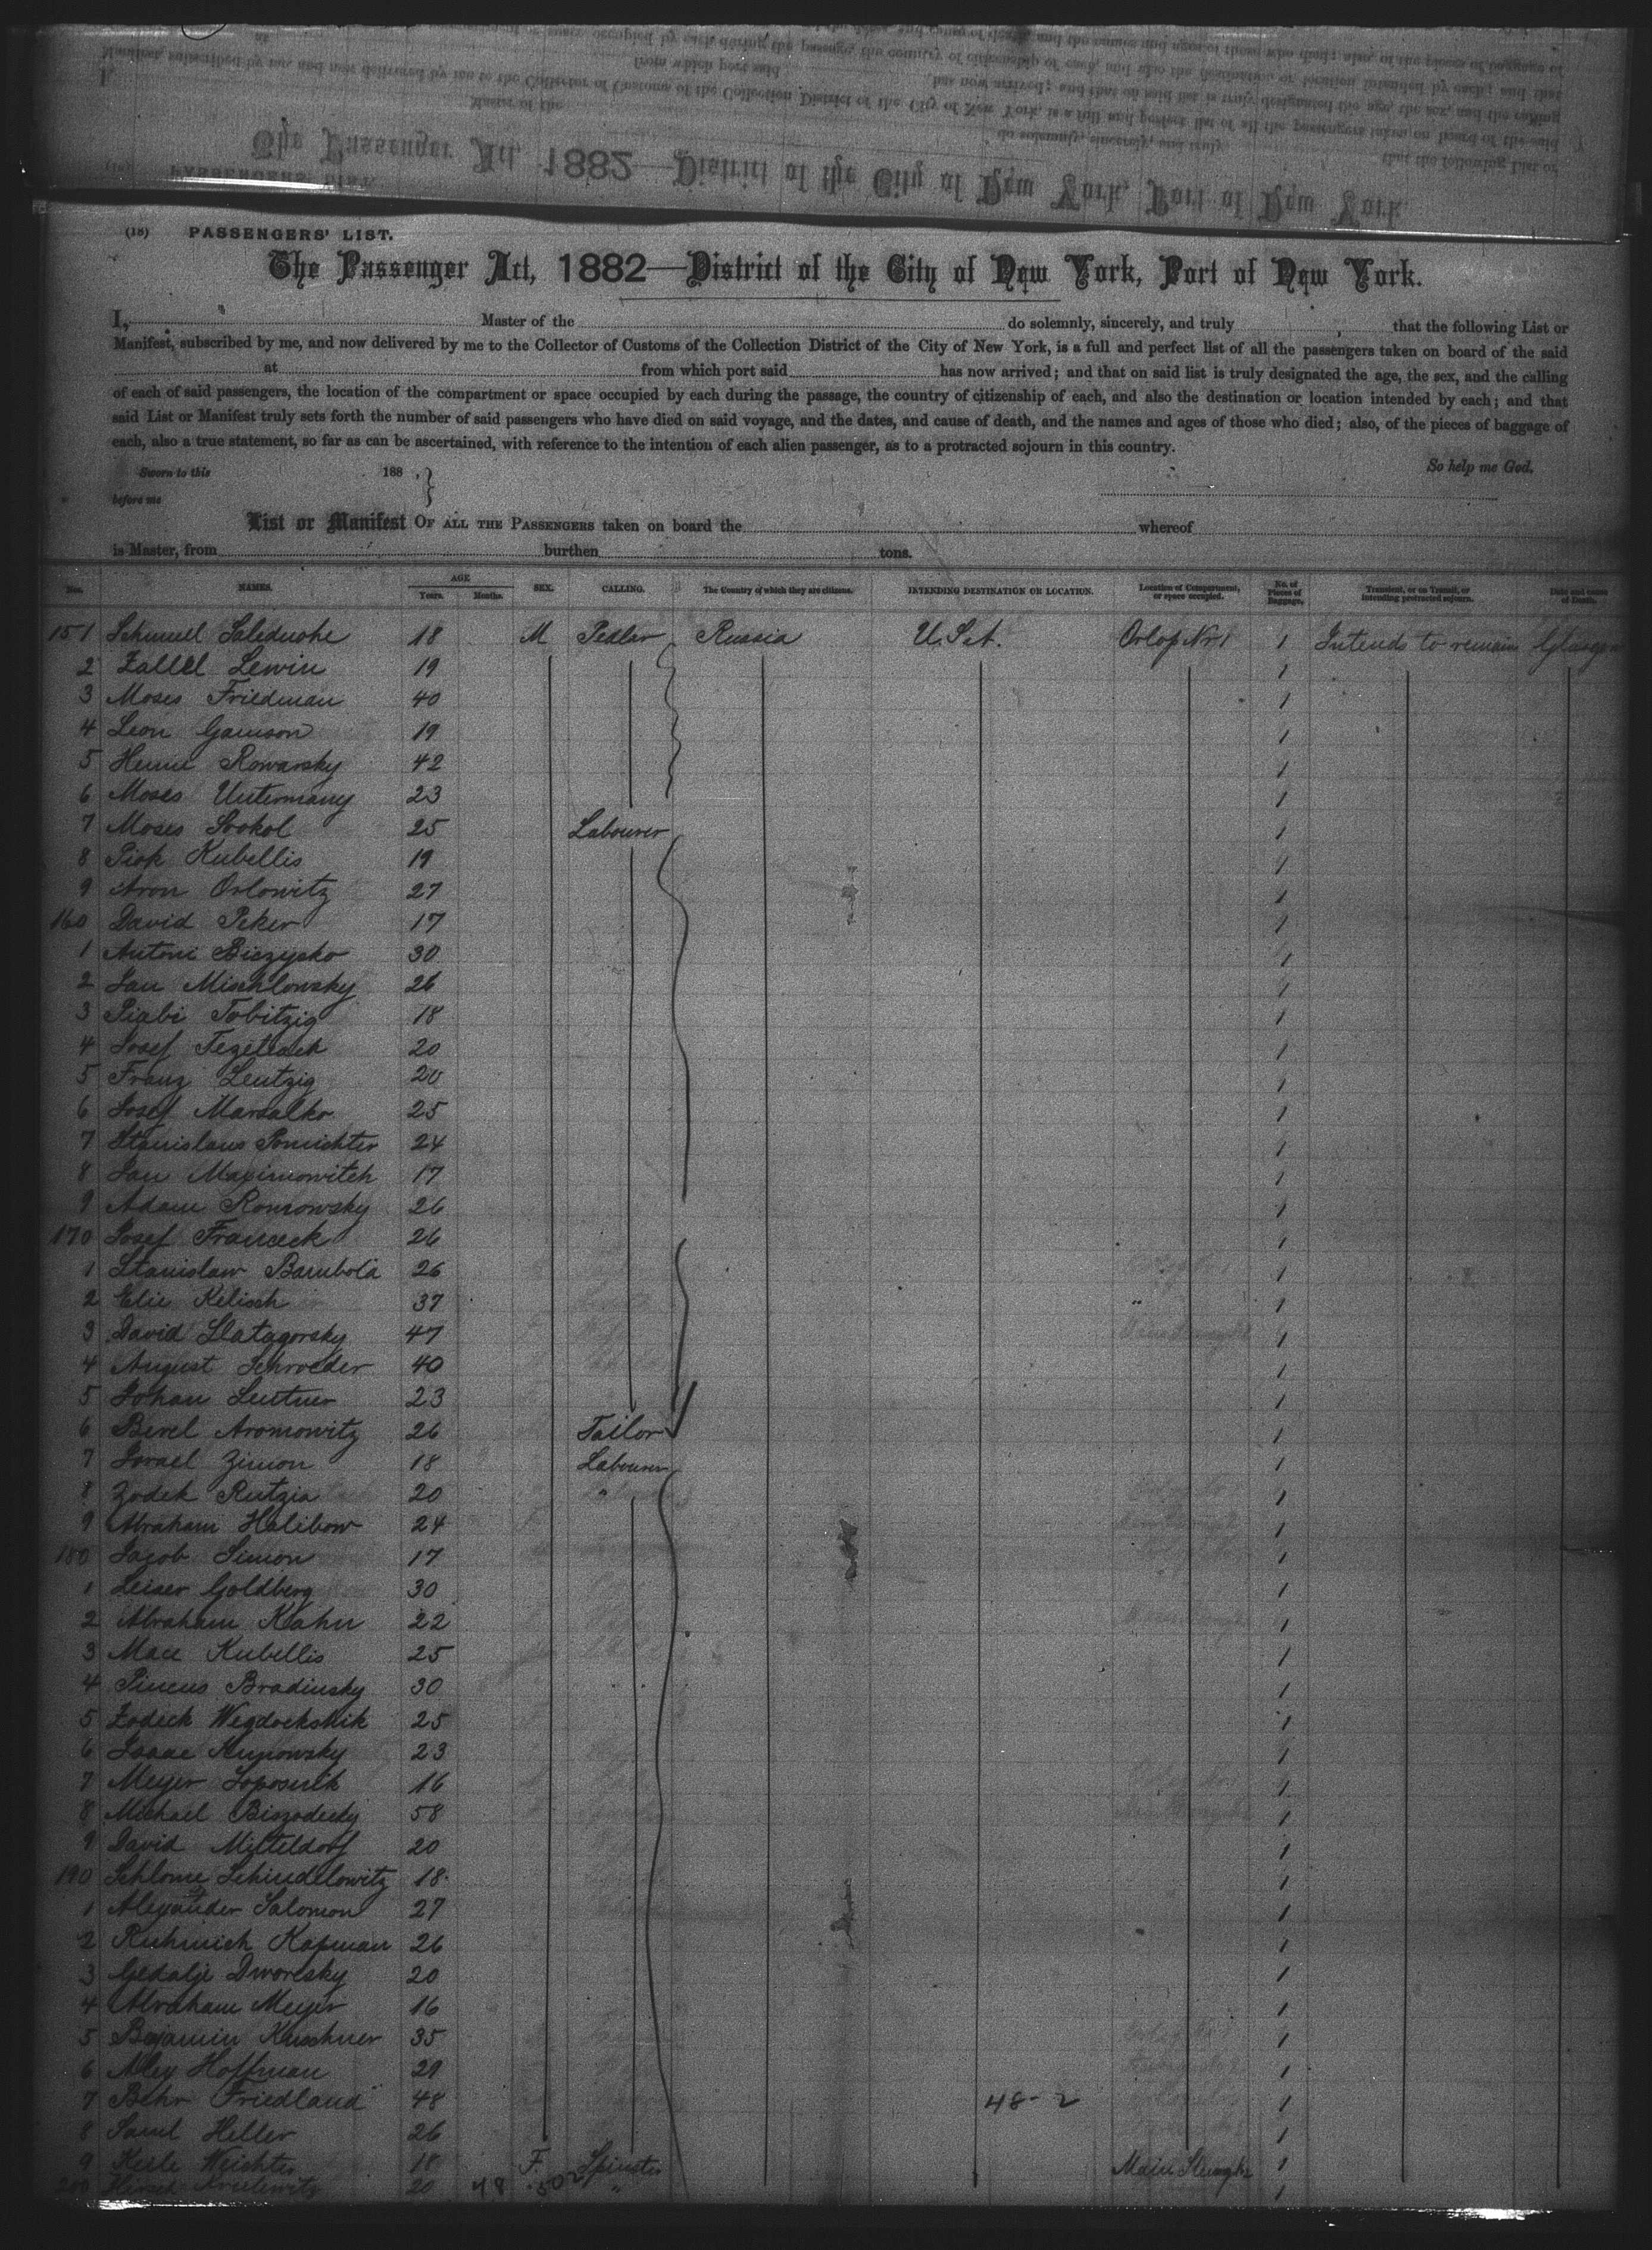 (18) PASSENGERS' LIST.
The Passenger Act, 1882—District of the City of New York, Port of New York.
I, Master of the do solemnly, sincerely, and truly that the following List or
Manifest, subscribed by me, and now delivered by me to the Collector of Customs of the Collection District of the City of New York, is a full and perfect list of all the passengers taken on board of the said
at from which port said has now arrived; and that on said list is truly designated the age, the sex, and the calling
of each of said passengers, the location of the compartment or space occupied by each during the passage, the country of citizenship of each, and also the destination or location intended by each; and that
said List or Manifest truly sets forth the number of said passengers who have died on said voyage, and the dates, and cause of death, and the names and ages of those who died; also, of the pieces of baggage of
each, also a true statement, so far as can be ascertained, with reference to the intention of each alien passenger, as to a protracted sojourn in this country.
Sworn to this 188 , } So help me God.
before me
List or Manifest OF ALL THE PASSENGERS taken on board the whereof
is Master, from burthen tons.
Nos. NAMES. AGE Years. Months. SEX. CALLING. The Country of which they are citizens. INTENDING DESTINATION OR LOCATION. Location of Compartment, or space occupied. No. of Pieces of Baggage. Transient, or on Transit, or intending protracted sojourn. Date and cause of Death.
151 Schmuel 18 M Pedlar Russia U.S.A. Orlop No 1 1 Intends to remain Glasgow
2 Zallel Lewin 19 1
3 Moses Friedman 40 1
4 Leon Gamson 19 1
5 Henne Rowarsky 42 1
6 Moses Untermany 23 1
7 Moses Sookol 25 Labourer 1
8 Piok Kubellis 19 1
9 Aron Orlowitz 27 1
160 David Peker 17 1
1 Antoni Biszysko 30 1
2 Jan Mischlowsky 26 1
3 Piabi Tobitzig 18 1
4 Josef 20 1
5 Franz Leutzig 20 1
6 Josef Marsalko 25 1
7 Stanislaus 24 1
8 Jan Maximowitch 17 1
9 Adam Romowsky 26 1
170 Josef Franceck 26 1
1 Stanislaw Bambola 26 1
2 Elie Kelisch 37 1
3 David Slatagorsky 47 1
4 August Schroeder 40 1
5 Johan Leutner 23 1
6 Berel Aromowitz 26 Tailor 1
7 Israel Zimon 18 Labourer 1
8 Zodek Rutzia 20 " 1
9 Abraham Halibow 24 1
180 Jacob Simon 17 1
1 Leiser Goldberg 30 1
2 Abraham Kahn 22 1
3 Max Kubellis 25 1
4 Pincus Bradinsky 30 1
5 Zodeck 25 1
6 Isaac 23 1
7 Meyer Soposnik 16 1
8 Michael 58 1
9 David Mitteldorf 20 1
190 Schlome Schindelowitz 18 1
1 Alexander Salomon 27 1
2 Kapman 26 1
3 Gedalje Dworesky 20 1
4 Abraham Meyer 16 1
5 Bejamin Kuschner 35 1
6 Alex Hoffman 29 1
7 Behr Friedland 48 48-2 1
8 Saml Heller 26 1
9 Keile 18 F. Spinster Main 1
200 20 48 "